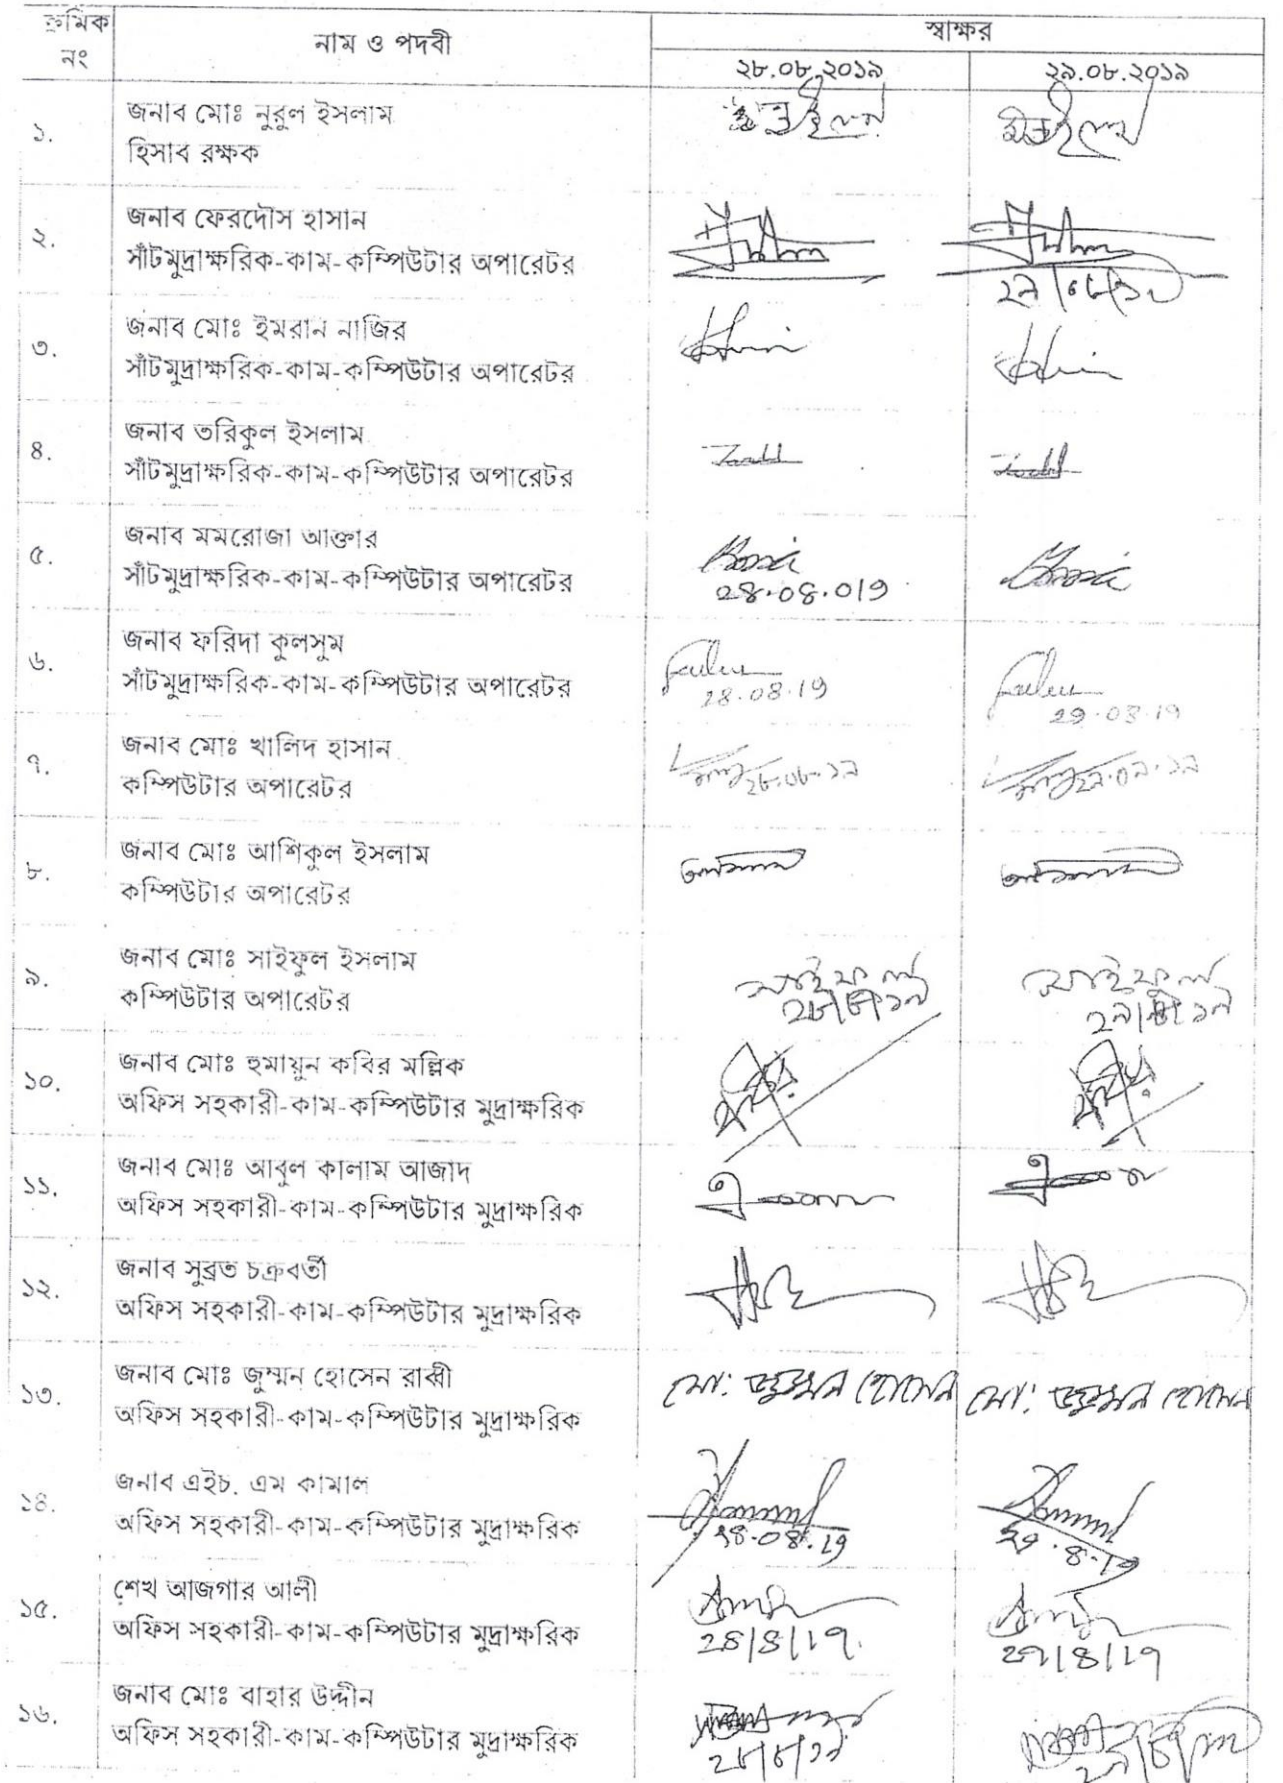 ক্রমিক
নং
নাম ও পদবী
স্বাক্ষর
২৮.০৮.২০১৯
২৯.০৮.২০১৯
১.
জনাব মোঃ নুরুল ইসলাম
হিসাব রক্ষক
২.
জনাব ফেরদৌস হাসান
সাঁটমুদ্রাক্ষরিক-কাম-কম্পিউটার অপারেটর
২৯/০৮/১৯
৩.
জনাব মোঃ ইমরান নাজির
সাঁটমুদ্রাক্ষরিক-কাম-কম্পিউটার অপারেটর
৪.
জনাব তরিকুল ইসলাম
সাঁটমুদ্রাক্ষরিক-কাম-কম্পিউটার অপারেটর
৫.
জনাব মমরোজা আক্তার
সাঁটমুদ্রাক্ষরিক-কাম-কম্পিউটার অপারেটর
28.08.019
৬.
জনাব ফরিদা কুলসুম
সাঁটমুদ্রাক্ষরিক-কাম-কম্পিউটার অপারেটর
28.08.19
29.08.19
৭.
জনাব মোঃ খালিদ হাসান
কম্পিউটার অপারেটর
২৮.০৮.১৯
৮.
জনাব মোঃ আশিকুল ইসলাম
কম্পিউটার অপারেটর
৯.
জনাব মোঃ সাইফুল ইসলাম
কম্পিউটার অপারেটর
সাইফুল
সাইফুল
২৮/৮/১৯
২৯/৮/১৯
১০.
জনাব মোঃ হুমায়ুন কবির মল্লিক
অফিস সহকারী-কাম-কম্পিউটার মুদ্রাক্ষরিক
কবির
কবির
১১.
জনাব মোঃ আবুল কালাম আজাদ
অফিস সহকারী-কাম-কম্পিউটার মুদ্রাক্ষরিক
১২.
জনাব সুব্রত চক্রবর্তী
অফিস সহকারী-কাম-কম্পিউটার মুদ্রাক্ষরিক
১৩.
জনাব মোঃ জুম্মন হোসেন রাব্বী
অফিস সহকারী-কাম-কম্পিউটার মুদ্রাক্ষরিক
মো: জুম্মন হোসেন
মো: জুম্মন হোসেন
১৪.
জনাব এইচ. এম কামাল
অফিস সহকারী-কাম-কম্পিউটার মুদ্রাক্ষরিক
28.08.19
29.8.19
১৫.
শেখ আজগার আলী
অফিস সহকারী-কাম-কম্পিউটার মুদ্রাক্ষরিক
28/8/19
29/8/19
১৬.
জনাব মোঃ বাহার উদ্দীন
অফিস সহকারী-কাম-কম্পিউটার মুদ্রাক্ষরিক
২৮/৮/১৯